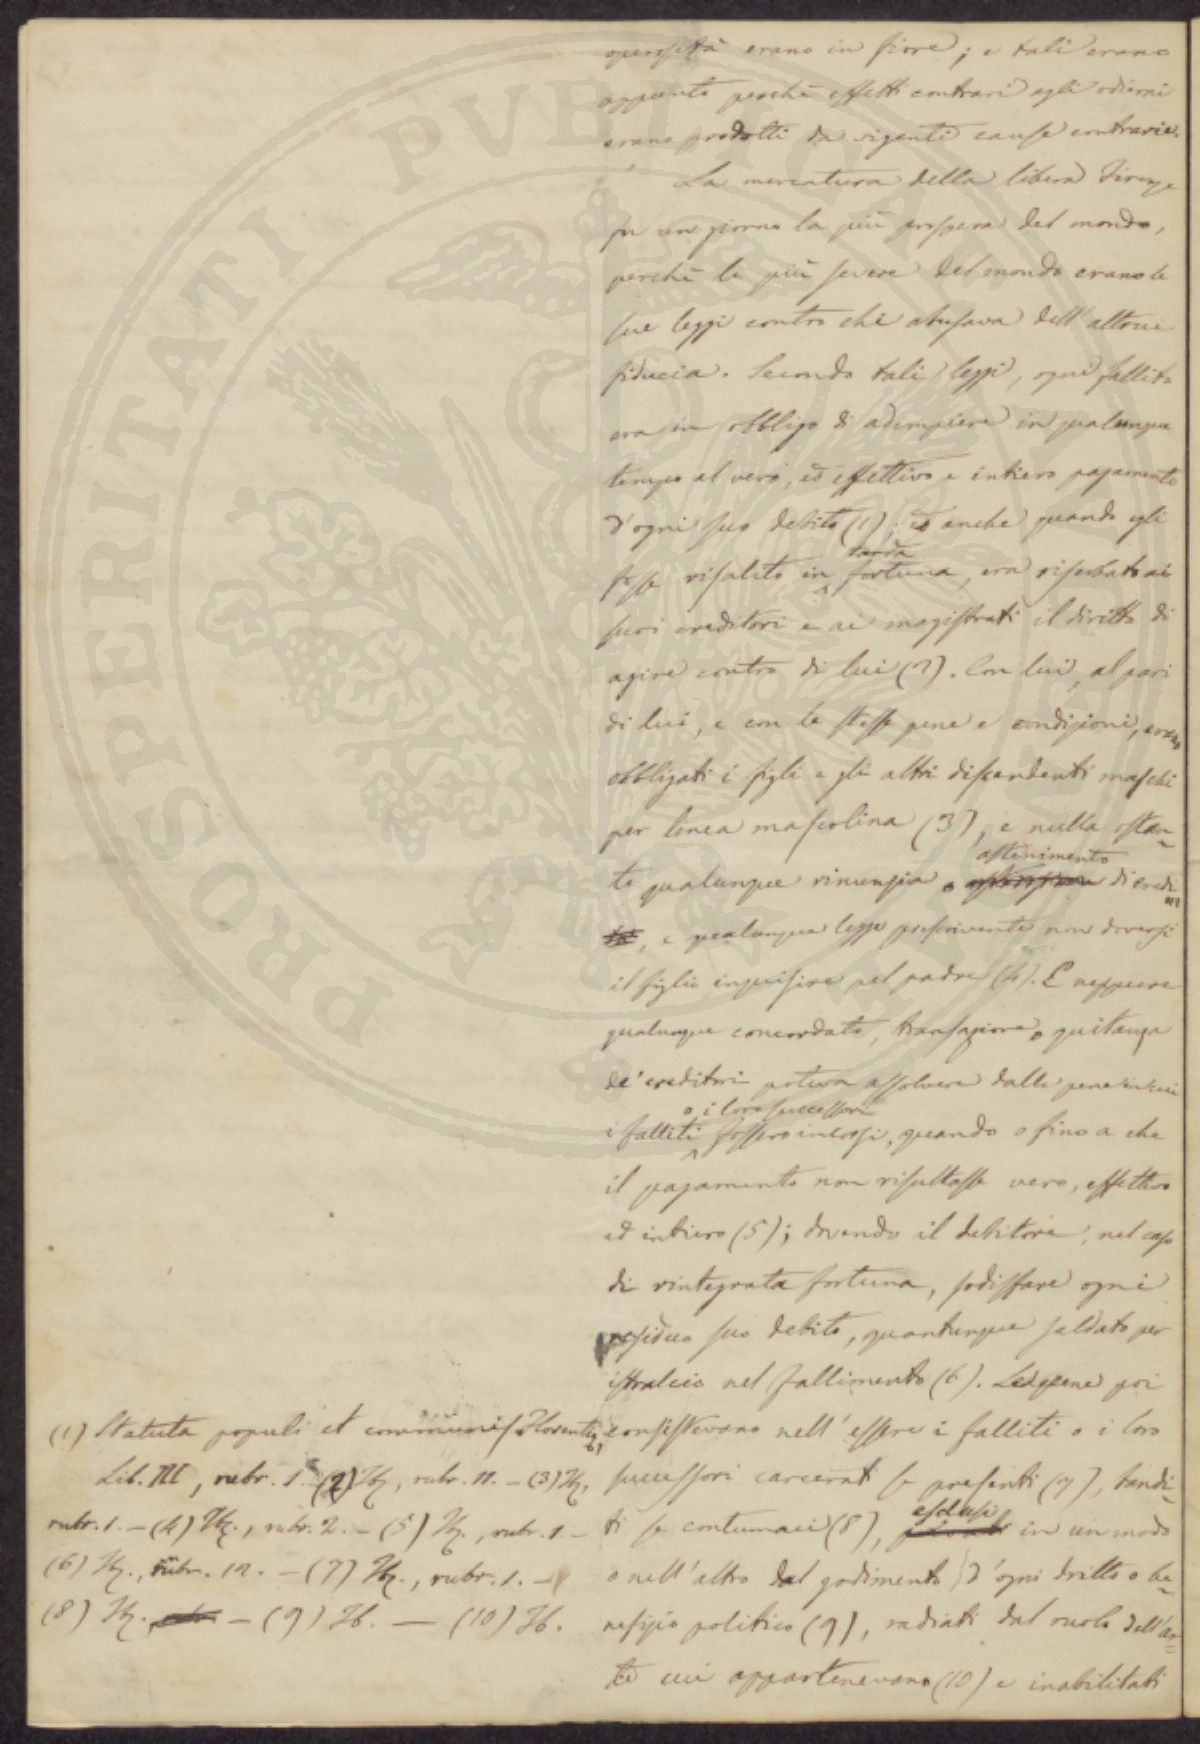 operosità erano in fiore; e tali erano
appunto perchè effetti contrari agli odierni
erano prodotti da vigenti cause contrarie.
La mercatura della libera Firenze
fu un giorno la più prospera del mondo,
perchè le più severe del mondo erano le
sue leggi contro chi abusava dell'altrui
fiducia. Secondo tali leggi, ogni fallito
era in obbligo di adempiere in qualunque
tempo al vero, ed effettivo e intiero pagamento
d'ogni suo debito (1); ed anche quando egli
fosse risalito in tarda fortuna, era riserbato ai
suoi creditori e ai magistrati il diritto di
agire contro di lui (2). Con lui, al pari
di lui, e con le stesse pene e condizioni, erano
obbligati i figli e gli altri discendenti maschi
per linea mascolina (3), e nulla ostan-
te qualunque rinunzia o astenimento di eredi
, e qualunque legge prescrivente non doversi
il figlio inquisire pel padre (4). E neppure
qualunque concordato, transazione o quitanza
de' creditori poteva assolvere dalle pene in cui
i falliti o i loro successori fossero incorsi, quando o fino a che
il pagamento non risultasse vero, effettivo
ed intiero (5); dovendo il debitore, nel caso
di rintegrata fortuna, sodisfare ogni
residuo suo debito, quantunque saldato per
istralcio nel fallimento (6). Le pene poi
consistevano nell'essere i falliti o i loro
successori carcerati se presenti (7), bandi-
ti se contumaci (8), esclusi in un modo
o nell'altro dal godimento d'ogni dritto o be-
nefizio politico (9), radiati dal ruolo dell'ar-
te cui appartenevano (10) e inabilitati
(1) Statuta populi et communis Florentiæ,
Lib. III, rubr. 1. (2) Ib., rubr. 11. – (3) Ib.,
rubr. 1. – (4) Ib., rubr. 2. – (5) Ib., rubr. 1. –
(6) Ib., rubr. 12. – (7) Ib., rubr. 1. –
(8) Ib. – (9) Ib. – (10) Ib.
PROSPERITATI PVBLICAE